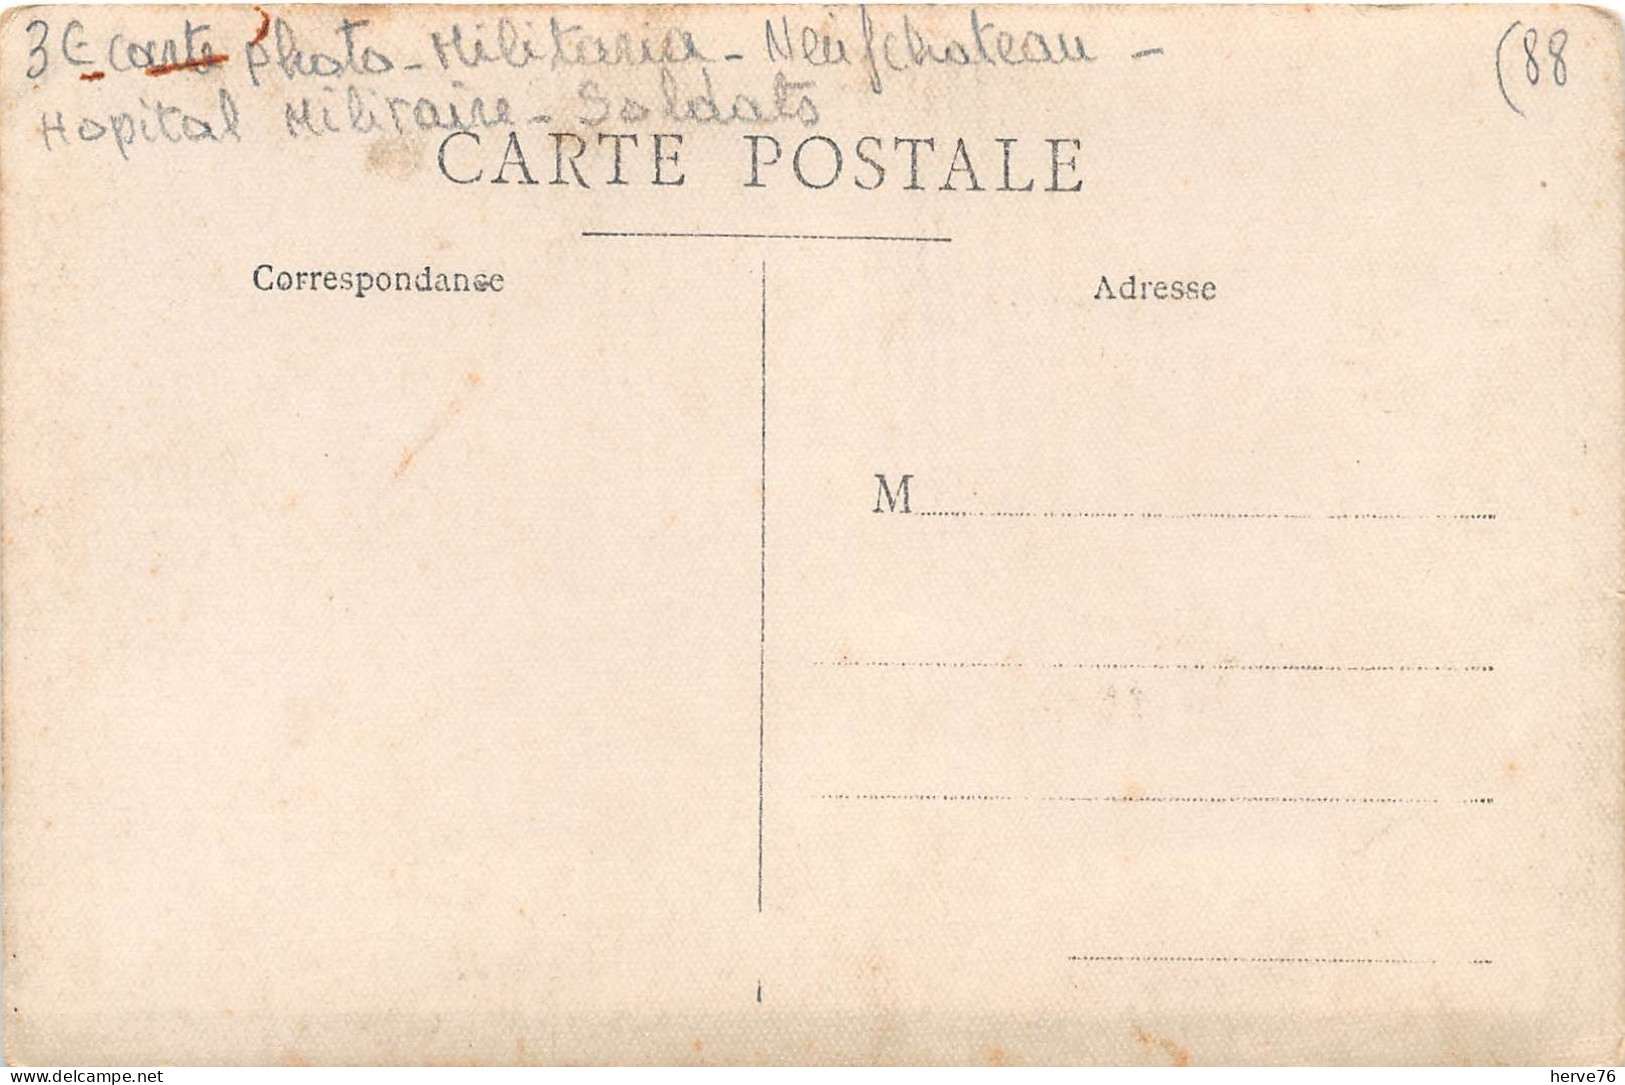 3€ carte photo - Militaria - Neufchateau - (88
Hopital Miliraire - Soldats
CARTE POSTALE
Correspondance
Adresse
M
www.delcampe.net
herve76